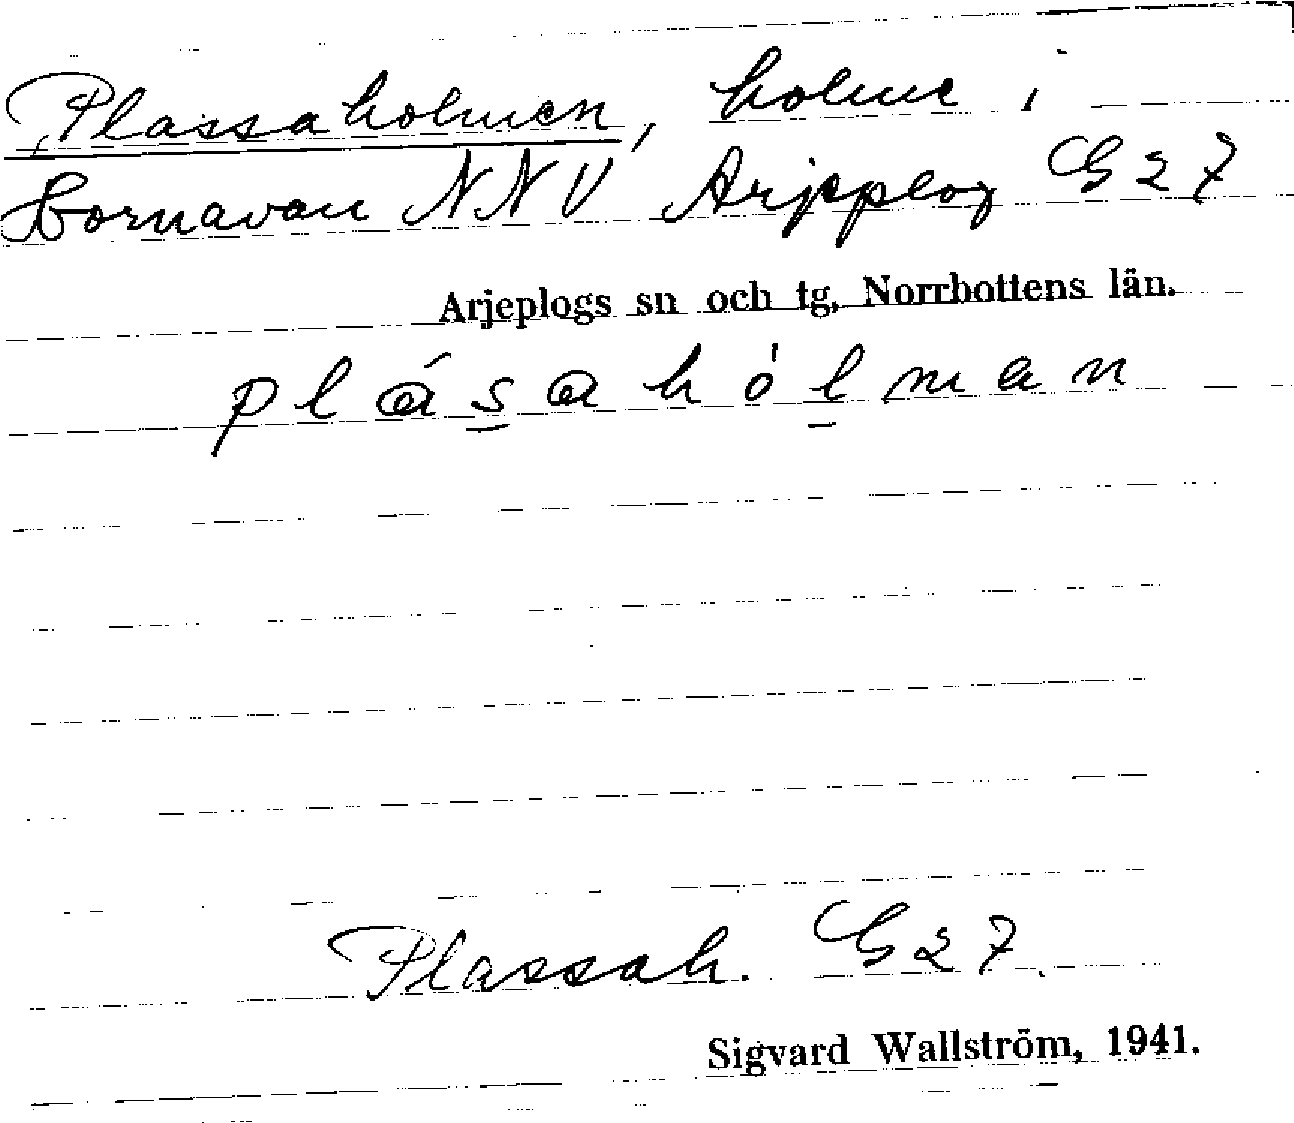 Plassaholmen, holme i
Hornavan NNV Arjeplog G 27
Arjeplogs sn och tg, Norrbottens län.
plásahólman
Plassah. G 27.
Sigvard Wallström, 1941.